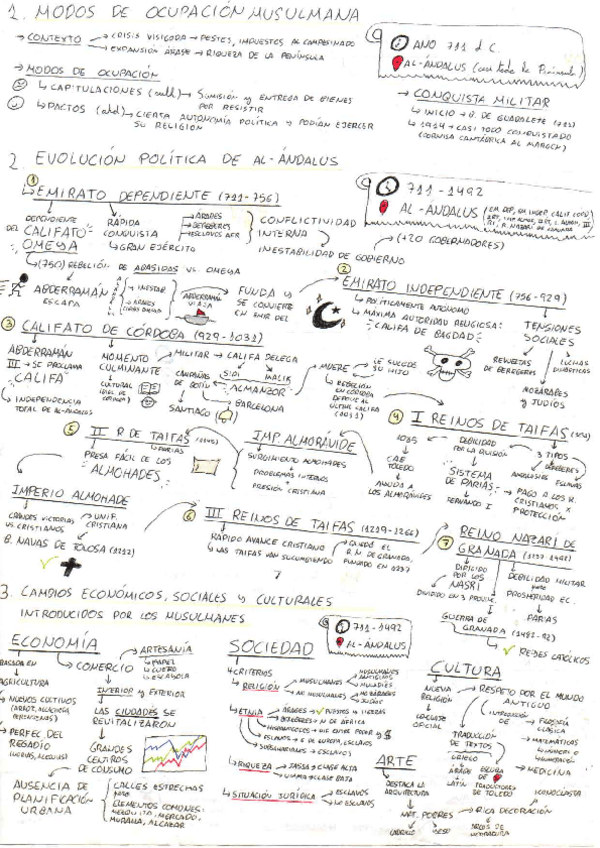 1. MODOS DE OCUPACIÓN MUSULMANA
→ CONTEXTO → CRISIS VISIGODA → PESTES, IMPUESTOS AL CAMPESINADO
→ EXPANSIÓN ÁRABE → RIQUEZA DE LA PENÍNSULA
AÑO 711 d.C.
AL-ÁNDALUS
→ MODOS DE OCUPACIÓN
↳ CAPITULACIONES → SUMISIÓN y ENTREGA DE BIENES
POR RESISTIR
↳ PACTOS → CIERTA AUTONOMÍA POLÍTICA → PODÍAN EJERCER
SU RELIGIÓN
→ CONQUISTA MILITAR
↳ INICIO → B. DE GUADALETE (711)
CASI TODO CONQUISTADO
2. EVOLUCIÓN POLÍTICA DE AL-ÁNDALUS
711-1492
AL-ÁNDALUS
1
EMIRATO DEPENDIENTE (711-756)
DEPENDIENTE
DEL CALIFATO
OMEYA
RÁPIDA
CONQUISTA
↳ GRAN EJÉRCITO
→ ÁRABES
→ BEREBERES
CONFLICTIVIDAD
INTERNA
INESTABILIDAD DE GOBIERNO
(+20 GOBERNADORES)
↳ (750) REBELIÓN DE ABASIDAS VS. OMEYA
ABDERRAMÁN
ESCAPA
ABDERRAMÁN
FUNDA Y
SE CONVIERTE
EN EMIR DEL
2
EMIRATO INDEPENDIENTE (756-929)
↳ POLÍTICAMENTE AUTÓNOMO
↳ MÁXIMA AUTORIDAD RELIGIOSA:
CALIFA DE BAGDAD
TENSIONES
SOCIALES
REVUELTAS
DE BEREBERES
MOZÁRABES
y JUDÍOS
3
CALIFATO DE CÓRDOBA (929-1031)
ABDERRAMÁN
III → SE PROCLAMA
CALIFA
↳ INDEPENDENCIA
TOTAL DE AL-ÁNDALUS
MOMENTO
CULMINANTE
CULTURAL
→ MILITAR → CALIFA DELEGA
CAMPAÑAS
DE BOTÍN
ALMANZOR
SANTIAGO
BARCELONA
MUERE
LE SUCEDE
SU HIJO
REBELIÓN
EN CÓRDOBA
ÚLTIMO CALIFA
(1031)
4
I REINOS DE TAIFAS
1085
CAE
TOLEDO
DEBILIDAD
POR LA DIVISIÓN
SISTEMA
DE PARIAS
FERNANDO I
3 TIPOS
BEREBERES
ESLAVAS
→ PAGO A LOS R.
CRISTIANOS X
PROTECCIÓN
AYUDA A
LOS ALMORÁVIDES
5
II R. DE TAIFAS
PRESA FÁCIL DE LOS
ALMOHADES
IMP. ALMORÁVIDE
SURGIMIENTO ALMOHADES
+
PROBLEMAS INTERNOS
+
PRESIÓN CRISTIANA
IMPERIO ALMOHADE
GRANDES VICTORIAS
VS. CRISTIANOS
UNIF.
CRISTIANA
B. NAVAS DE TOLOSA (1212)
6
III REINOS DE TAIFAS
RÁPIDO AVANCE CRISTIANO
↳ LAS TAIFAS VAN SUCUMBIENDO
QUEDÓ EL
R. N. DE GRANADA,
FUNDADO EN 1237
7
REINO NAZARÍ DE
GRANADA (1237-1492)
DIRIGIDO
POR LOS
NASRÍ
DIVIDIDO EN 3
DEBILIDAD MILITAR
PROSPERIDAD EC.
PARIAS
GUERRA DE
GRANADA (1482-92)
REYES CATÓLICOS
3. CAMBIOS ECONÓMICOS, SOCIALES Y CULTURALES
INTRODUCIDOS POR LOS MUSULMANES
711-1492
AL-ÁNDALUS
ECONOMÍA
BASADA EN
AGRICULTURA
→ NUEVOS CULTIVOS
→ PERFEC. DEL
REGADÍO
COMERCIO
→ ARTESANÍA
↳ PAPEL
↳ CUERO
INTERIOR y EXTERIOR
LAS CIUDADES SE
REVITALIZARON
GRANDES
CENTROS
DE CONSUMO
AUSENCIA DE
PLANIFICACIÓN
URBANA
CALLES ESTRECHAS
ELEMENTOS COMUNES:
MEZQUITA, MERCADO,
MURALLA, ALCÁZAR
SOCIEDAD
↳ CRITERIOS
↳ RELIGIÓN
MUSULMANES
NO MUSULMANES
MULADÍES
MOZÁRABES
JUDÍOS
↳ ETNIA
ÁRABES → PUESTOS y TIERRAS
BEREBERES → N. DE ÁFRICA
ESLAVOS → E. DE EUROPA, ESCLAVOS
→ ESCLAVOS
↳ RIQUEZA
→ JASSA → CLASE ALTA
→ CLASE BAJA
↳ SITUACIÓN JURÍDICA
→ ESCLAVOS
→ NO ESCLAVOS
CULTURA
NUEVA
RELIGIÓN
OFICIAL
→ RESPETO POR EL MUNDO
ANTIGUO
INTRODUCCIÓN
DE
FILOSOFÍA
CLÁSICA
MATEMÁTICAS
TRADUCCIÓN
DE TEXTOS
GRIEGO
ÁRABE
LATÍN
TRADUCTORES
DE TOLEDO
MEDICINA
ARTE
DESTACA LA
ARQUITECTURA
MAT. POBRES
LADRILLO
YESO
ICONOCLASTA
RICA DECORACIÓN
ARCOS DE
HERRADURA